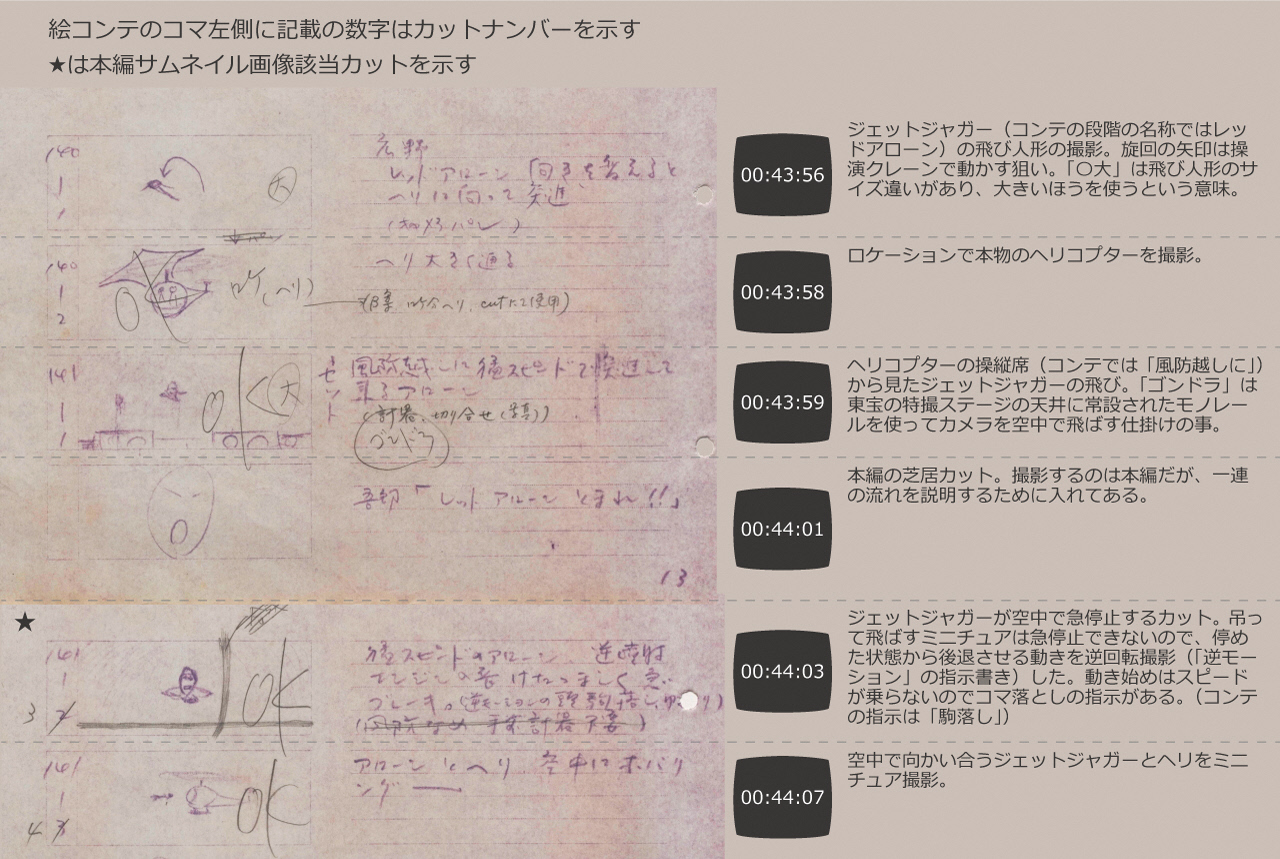 絵コンテのコマ左側に記載の数字はカットナンバーを示す
★は本編サムネイル画像該当カットを示す
140
1
1
大
広野
レッドアローン 向きを変えると
ヘリに向って突進
00:43:56
ジェットジャガー（コンテの段階の名称ではレッ
ドアローン）の飛び人形の撮影。旋回の矢印は操
演クレーンで動かす狙い。「〇大」は飛び人形のサ
イズ違いがあり、大きいほうを使うという意味。
140
1
2
ロケ(ヘリ)
ヘリ大きく通る
00:43:58
ロケーションで本物のヘリコプターを撮影。
141
1
1
大
セット
風防越しに猛スピードで突進して
来るアローン
(計器、切り合せ(写真))
ゴンドラ
00:43:59
ヘリコプターの操縦席（コンテでは「風防越しに」）
から見たジェットジャガーの飛び。「ゴンドラ」は
東宝の特撮ステージの天井に常設されたモノレー
ルを使ってカメラを空中で飛ばす仕掛けの事。
吾郎「レッドアローン とまれ!!」
13
00:44:01
本編の芝居カット。撮影するのは本編だが、一連
の流れを説明するために入れてある。
★
141
1
3 2
OK
猛スピードのアローン 逆噴射
00:44:03
ジェットジャガーが空中で急停止するカット。吊っ
て飛ばすミニチュアは急停止できないので、停め
た状態から後退させる動きを逆回転撮影（「逆モー
ション」の指示書き）した。動き始めはスピード
が乗らないのでコマ落としの指示がある。（コンテ
の指示は「駒落し」）
141
1
4 3
OK
アローンとヘリ 空中にホバリ
ング
00:44:07
空中で向かい合うジェットジャガーとヘリをミニ
チュア撮影。